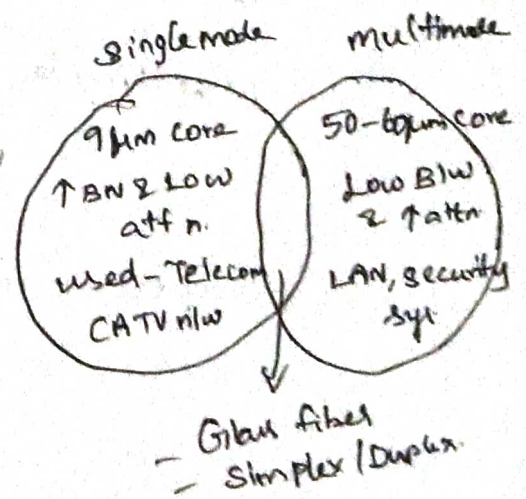 singlemode
multimode
9μm core
↑BW & Low
attn.
used-Telecom
CATV n/w
50-60μm core
Low B/w
& ↑attn
LAN, security
sys
- Glass fiber
- Simplex/Duplex.